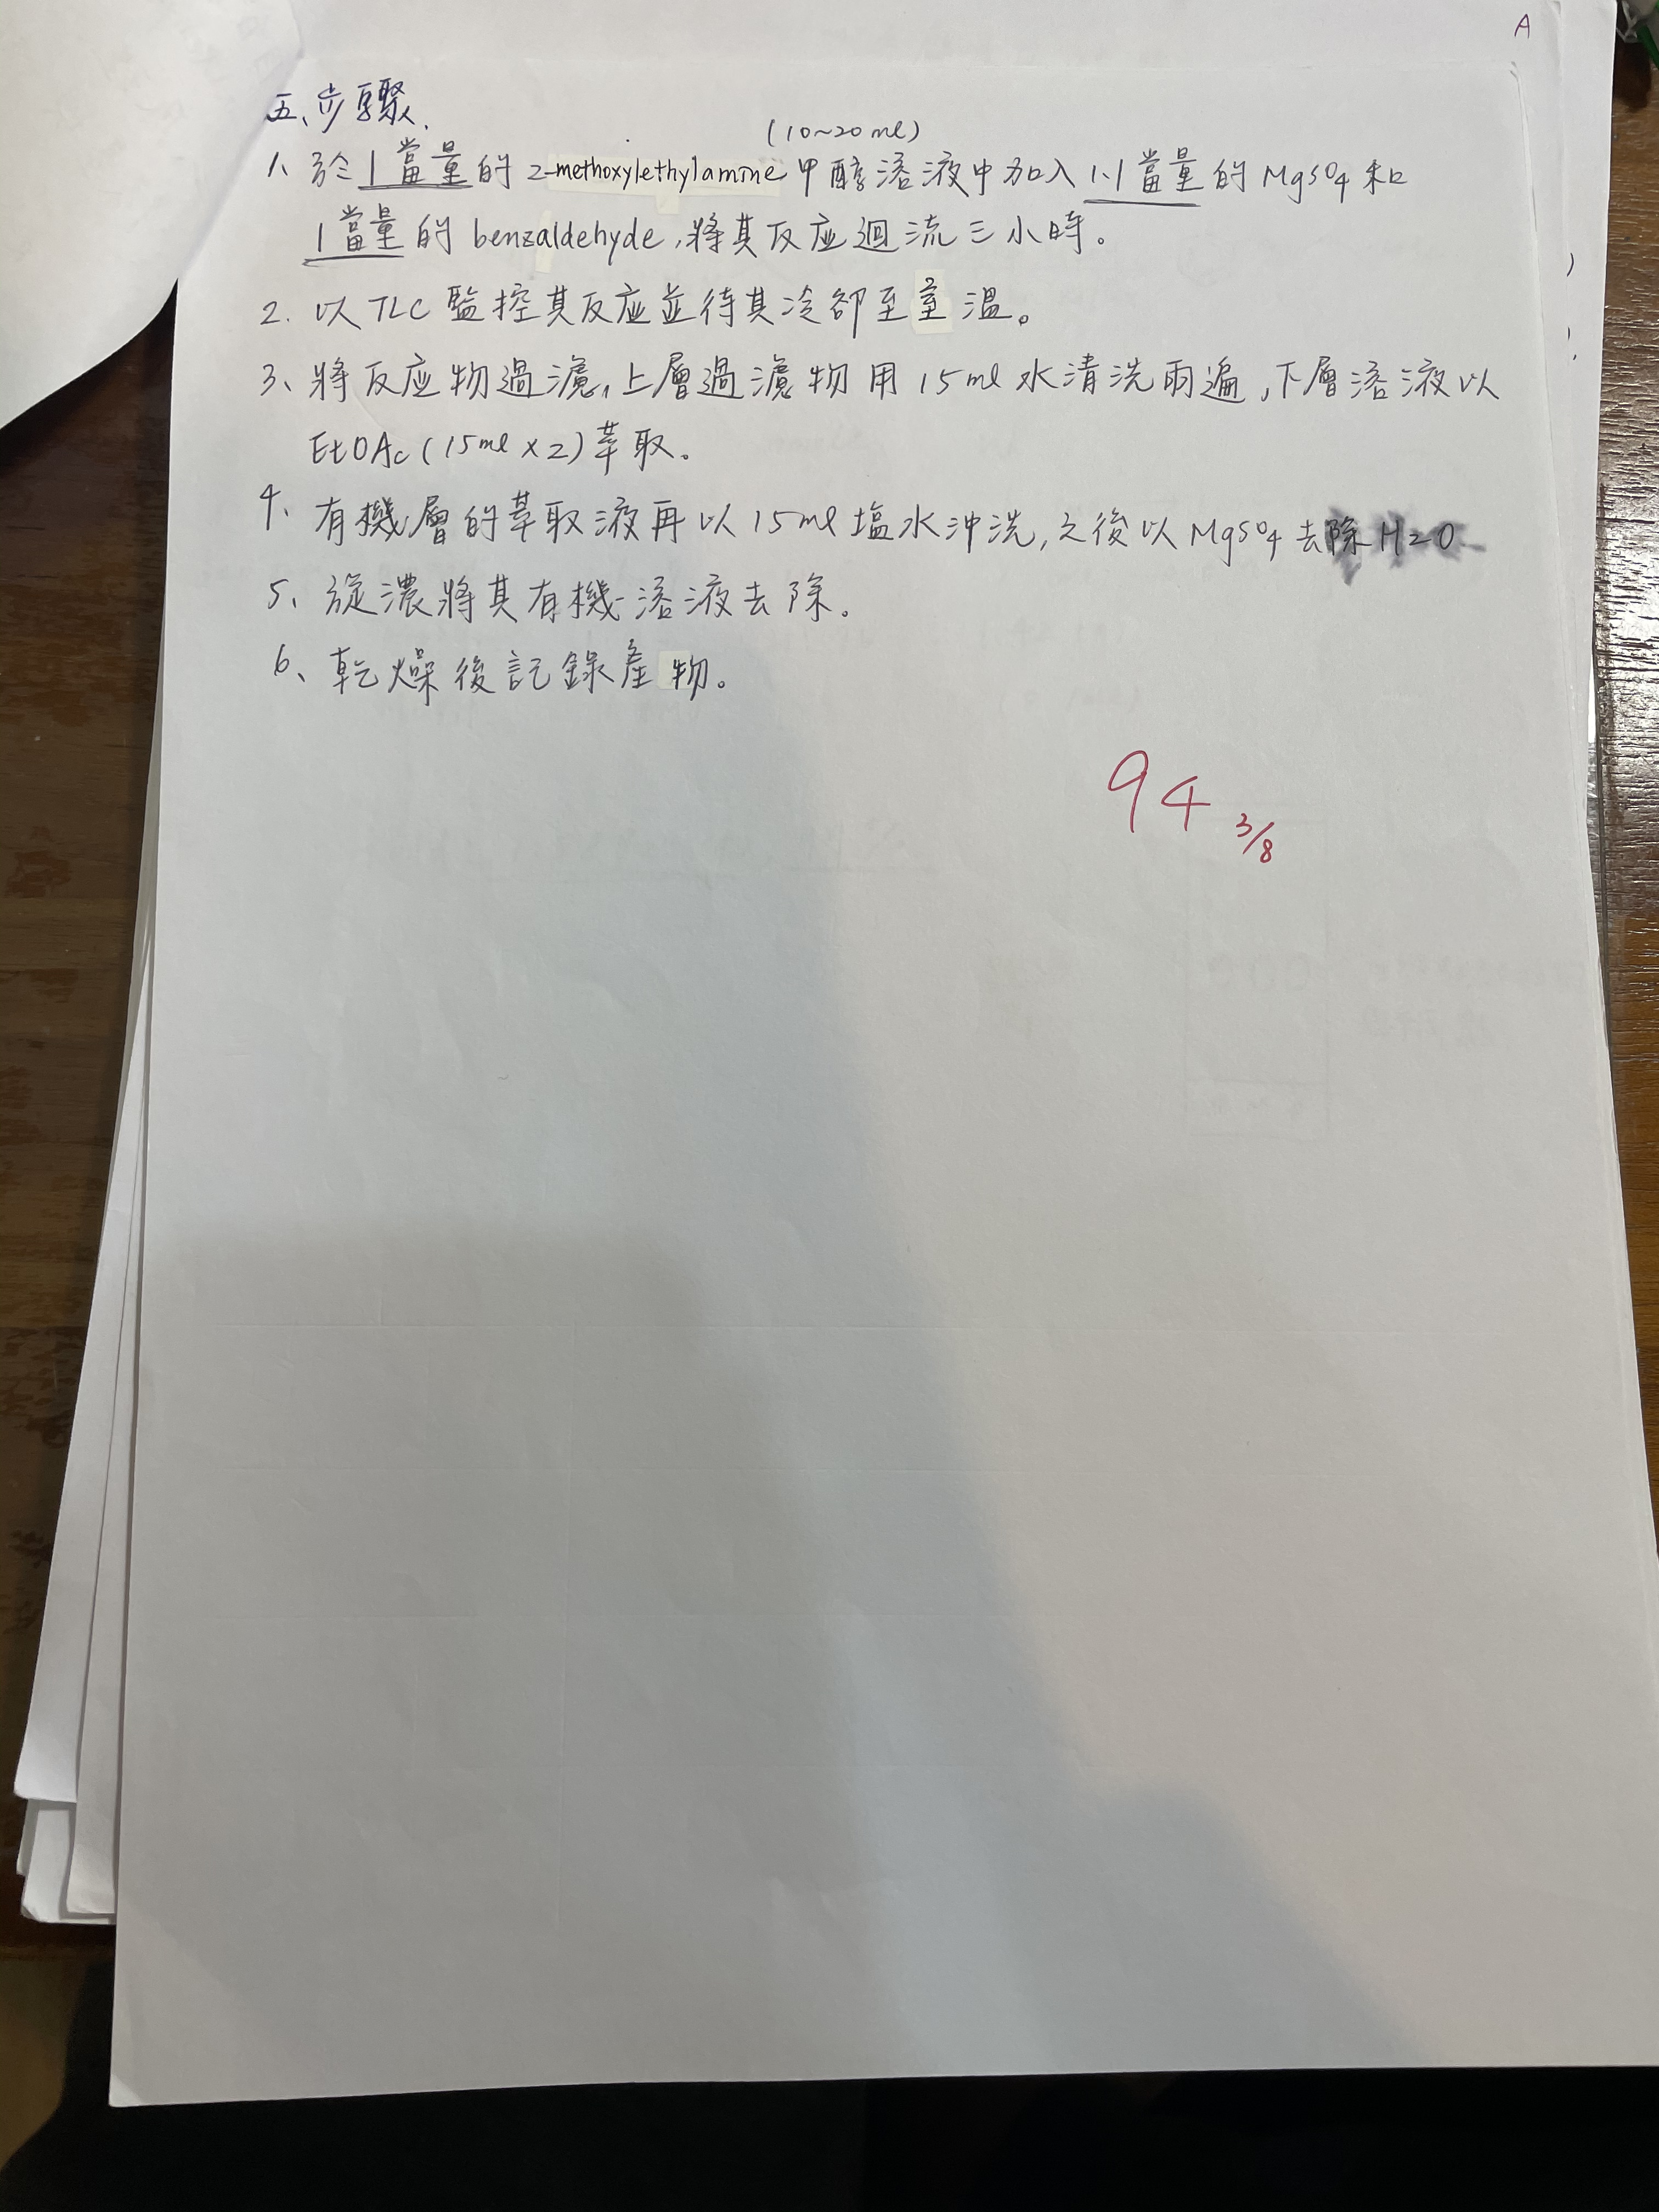 A
五、步驟.
(10~20 ml)
1、於1當量的2-methoxylethylamine甲醇溶液中加入1.1當量的MgSO4和
1當量的benzaldehyde,將其反应迴流三小時。
2. 以TLC監控其反应並待其冷卻至室溫。
3、將反应物過濾,上層過濾物用15ml水清洗兩遍,下層溶液以
EtOAc(15ml×2)萃取。
4、有機層的萃取液再以15ml塩水沖洗,之後以MgSO4去除H2O.
5、旋濃將其有機溶液去除。
6、乾燥後記錄產物。
94 3/8